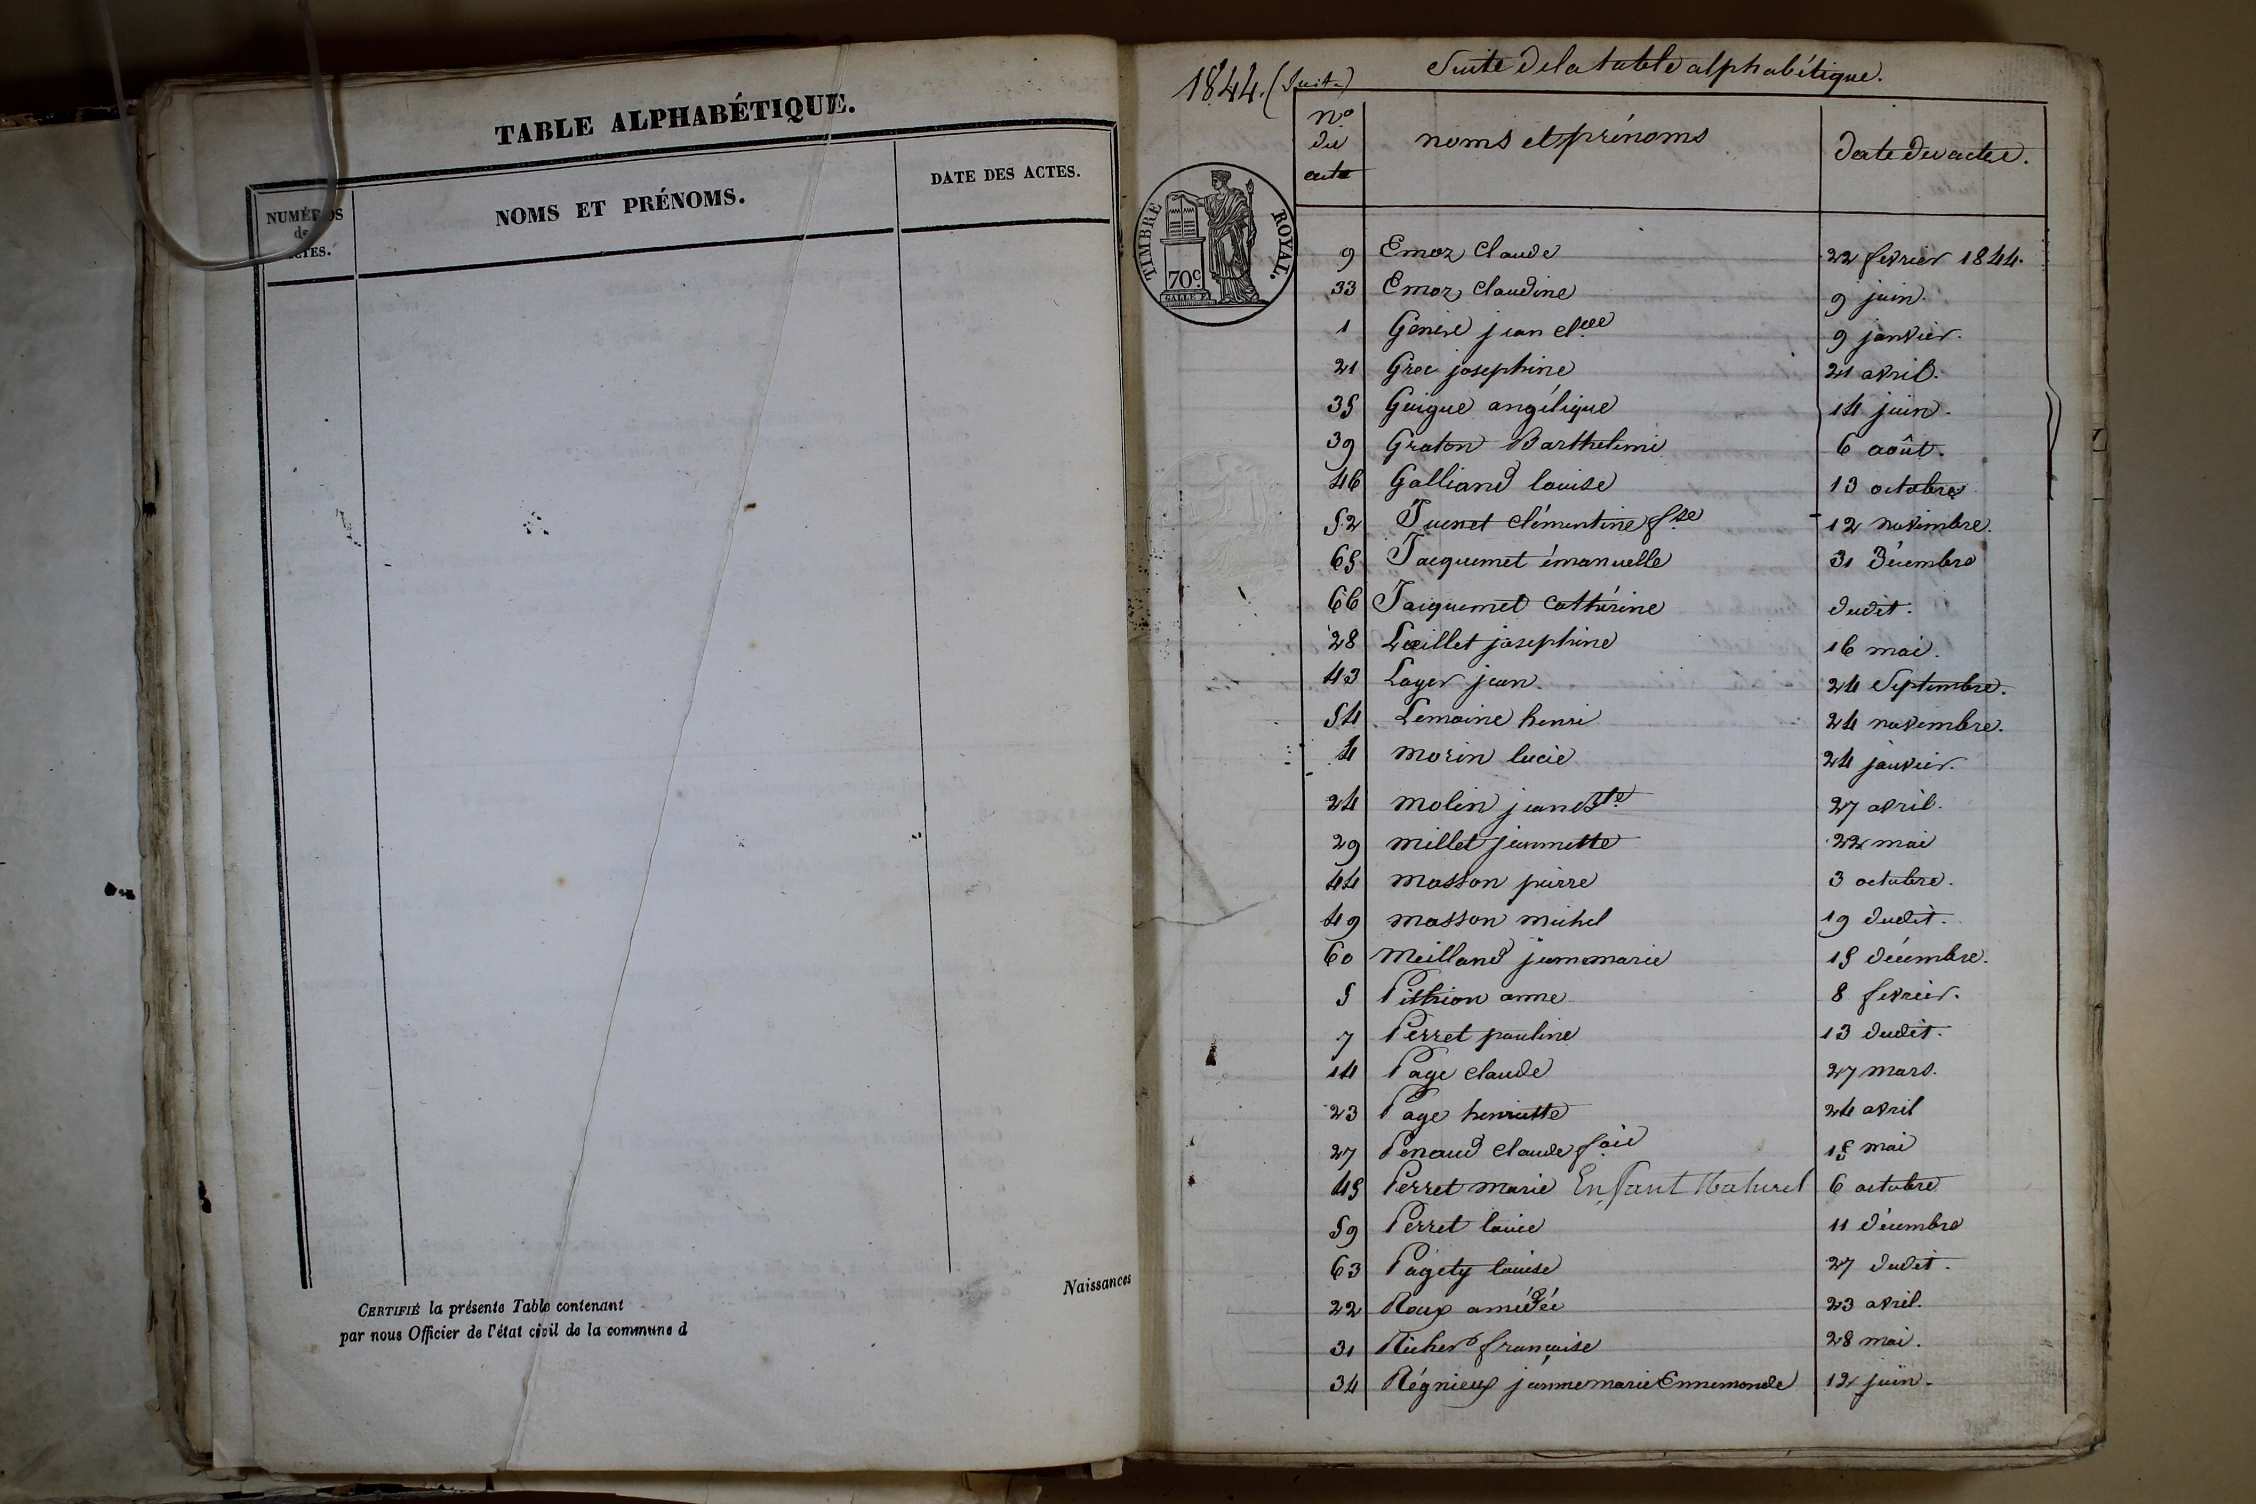 TABLE ALPHABÉTIQUE.
NUMÉROS
de
ACTES.
NOMS ET PRÉNOMS.
DATE DES ACTES.
Naissances
CERTIFIÉ la présente Table contenant
par nous Officier de l'état civil de la commune d
1844. (Suite)
Suite de la table alphabétique.
N°
du
acte
noms et prénoms
date du acte.
TIMBRE ROYAL.
70c.
9 Emoz Claude 22 fevrier 1844.
33 Emoz Claudine 9 juin.
1 jean 9 janvier.
21 Grec josephine 21 avril.
35 Guigue angélique 14 juin.
39 Graton Barthelemi 6 août.
46 Galliand louise 13 octobre
52 Juenet clémentine fse 12 novembre.
65 Jacquemet émanuelle 31 Décembre
66 Jacquemet cathérine dudit.
28 Lœillet josephine 16 mai.
43 Layer jean. 24 Septembre.
54 Lemoine henri 24 novembre.
4 morin lucie 24 janvier.
24 molin jean Bte 27 avril.
29 millet jeannette 22 mai
44 masson pierre 3 octobre.
49 masson michel 19 dudit.
60 Meilland jeanmarie 15 décembre.
5 Pithion anne 8 fevrier.
7 Perret pauline 13 dudit.
14 Page claude 27 mars.
23 Page henriette 24 avril
27 Penaud Claude 15 mai
45 Perret marie Enfant Naturel 6 octobre
59 Perret louise 11 décembre
63 Pagety louise 27 dudit.
22 Roux amédée 23 avril.
31 Richerd françoise 28 mai.
34 Régnieux jeannemarie Ennemonde 12 juin.